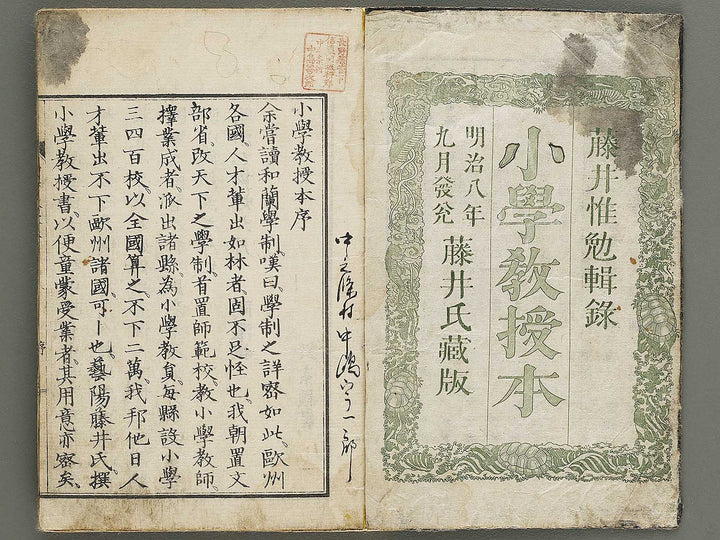 藤井惟勉輯錄
小學教授本
明治八年
九月發兌
藤井氏藏版
小學教授本序
余嘗讀和蘭學制嘆曰學制之詳密如此歐州
各國人才輩出如林者固不足怪也我朝置文
部省改天下之學制首置師範校教小學教師
擇業成者派出諸縣為小學教員每縣設小學
三四百校以全國算之不下二萬我邦他日人
才輩出不下歐州諸國可卜也藝陽藤井氏撰
小學教授書以便童蒙受業者其用意亦密矣
序